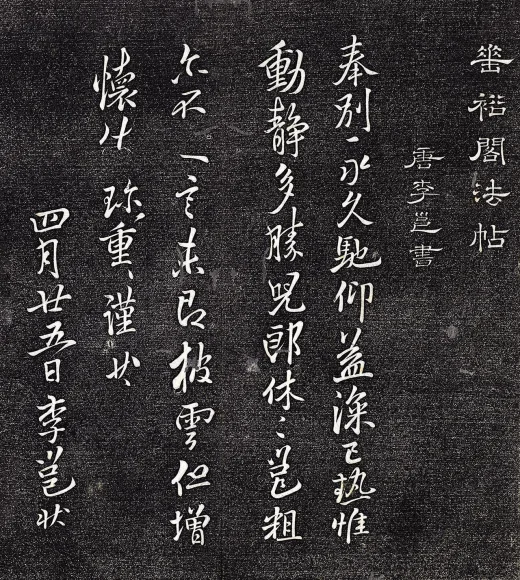 垂裕閣法帖
唐李邕書
奉別一永久馳仰益深已熱惟
動静多勝兒郎休〻邕粗
尒不一言未即披雲但增
懷 珍重〻謹
四月廿五日李邕狀